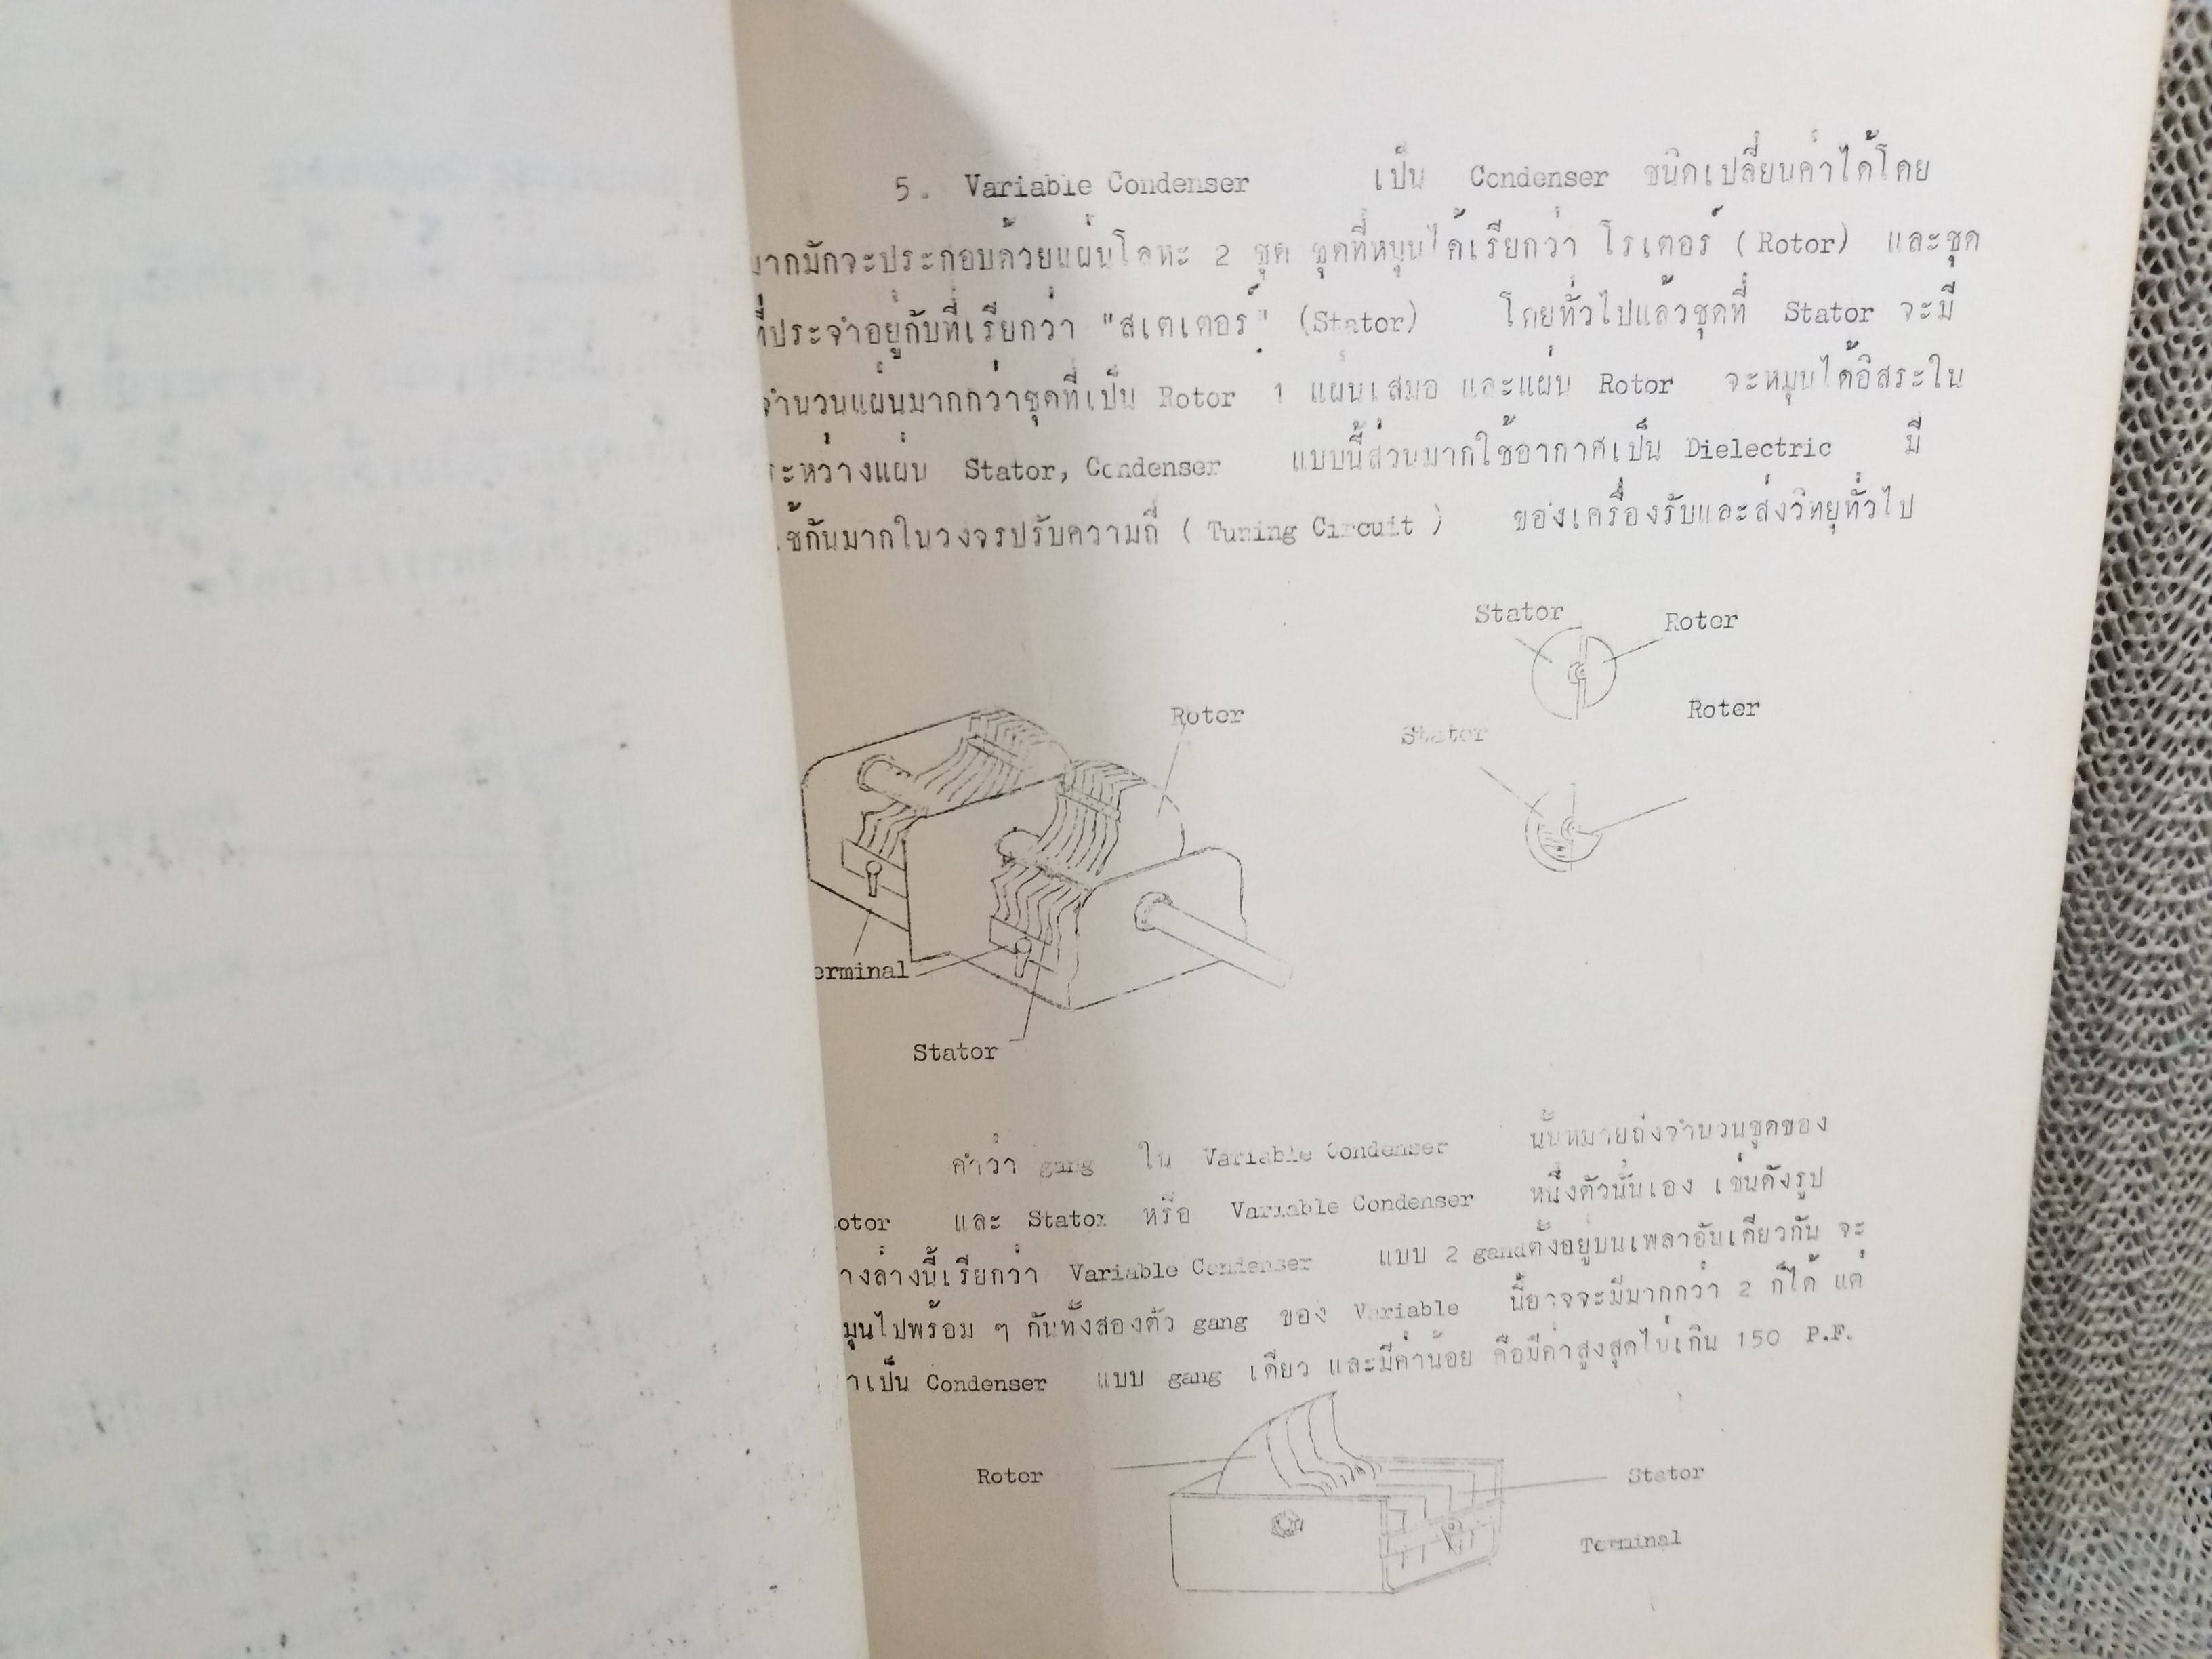 5. Variable Condenser เป็น Condenser ชนิดเปลี่ยนค่าได้โดย
มากมักจะประกอบด้วยแผ่นโลหะ 2 ชุด ชุดที่หมุนได้เรียกว่า โรเตอร์ ( Rotor) และชุด
ที่ประจำอยู่กับที่เรียกว่า "สเตเตอร์" (Stator) โดยทั่วไปแล้วชุดที่ Stator จะมี
จำนวนแผ่นมากกว่าชุดที่เป็น Rotor 1 แผ่นเสมอ และแผ่น Rotor จะหมุนได้อิสระใน
ระหว่างแผ่น Stator, Condenser แบบนี้ส่วนมากใช้อากาศเป็น Dielectric มี
ใช้กันมากในวงจรปรับความถี่ ( Tuning Circuit ) ของเครื่องรับและส่งวิทยุทั่วไป
Stator Rotor
Rotor
Stator
Roter
erminal
Stator
คำว่า gang ใน Variable Condenser นั้นหมายถึงจำนวนชุดของ
otor และ Stator หรือ Variable Condenser หนึ่งตัวนั้นเอง เช่นดังรูป
างล่างนี้เรียกว่า Variable Condenser แบบ 2 gangตั้งอยู่บนเพลาอันเดียวกัน จะ
มุนไปพร้อม ๆ กันทั้งสองตัว gang ของ Variable นี้อาจจะมีมากกว่า 2 ก็ได้ แต่
าเป็น Condenser แบบ gang เดียว และมีค่าน้อย คือมีค่าสูงสุดไม่เกิน 150 P.F.
Rotor
Stator
Terminal